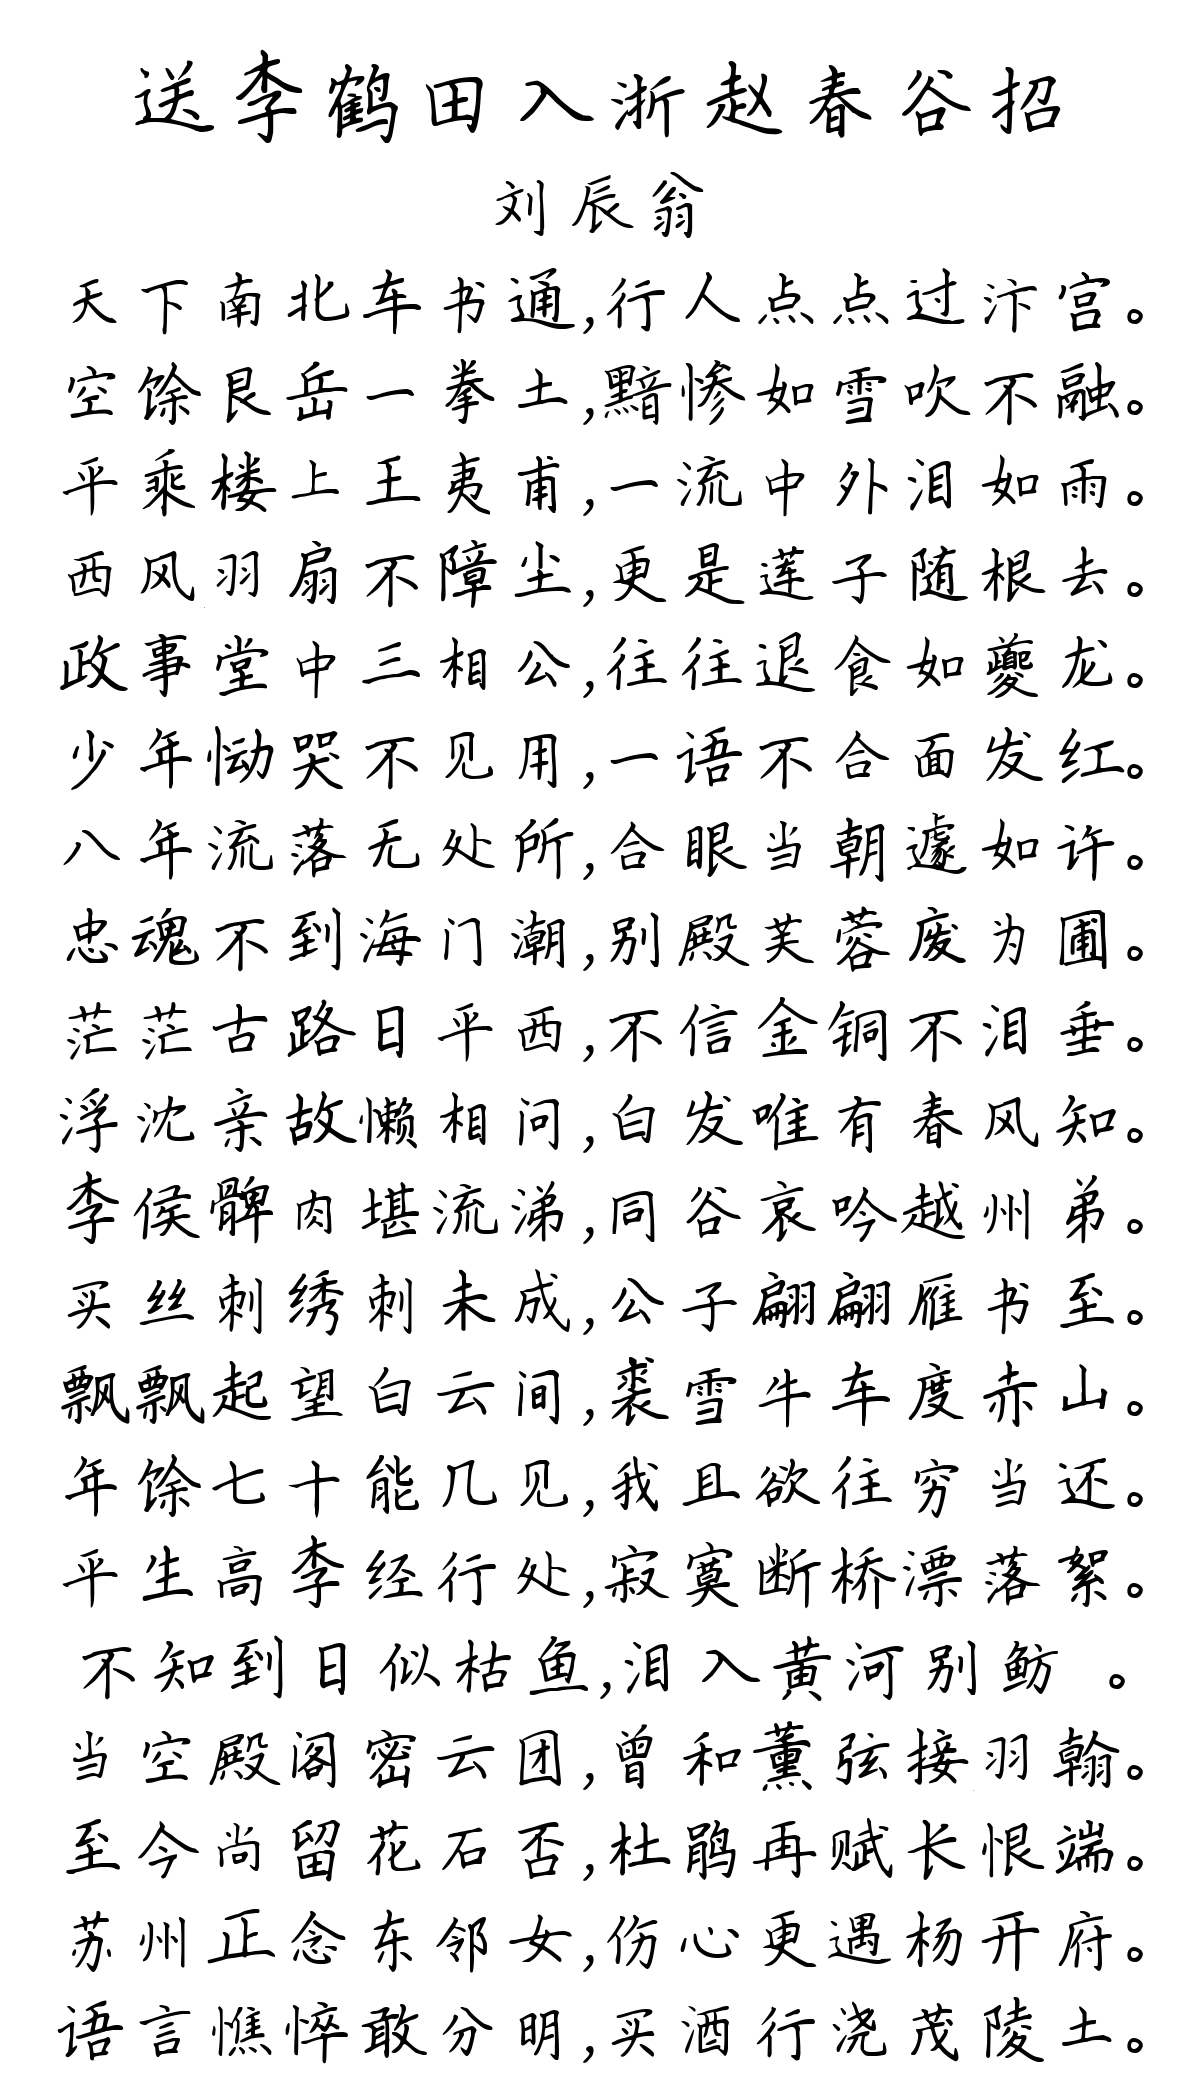 送李鹤田入浙赵春谷招
刘辰翁
天下南北车书通,行人点点过汴宫。
空馀艮岳一拳土,黯惨如雪吹不融。
平乘楼上王夷甫,一流中外泪如雨。
西风羽扇不障尘,更是莲子随根去。
政事堂中三相公,往往退食如夔龙。
少年恸哭不见用,一语不合面发红。
八年流落无处所,合眼当朝遽如许。
忠魂不到海门潮,别殿芙蓉废为圃。
茫茫古路日平西,不信金铜不泪垂。
浮沈亲故懒相问,白发唯有春风知。
李侯髀肉堪流涕,同谷哀吟越州弟。
买丝刺绣刺未成,公子翩翩雁书至。
飘飘起望白云间,裘雪牛车度赤山。
年馀七十能几见,我且欲往穷当还。
平生高李经行处,寂寞断桥漂落絮。
不知到日似枯鱼,泪入黄河别鲂 。
当空殿阁密云团,曾和薰弦接羽翰。
至今尚留花石否,杜鹃再赋长恨端。
苏州正念东邻女,伤心更遇杨开府。
语言憔悴敢分明,买酒行浇茂陵土。